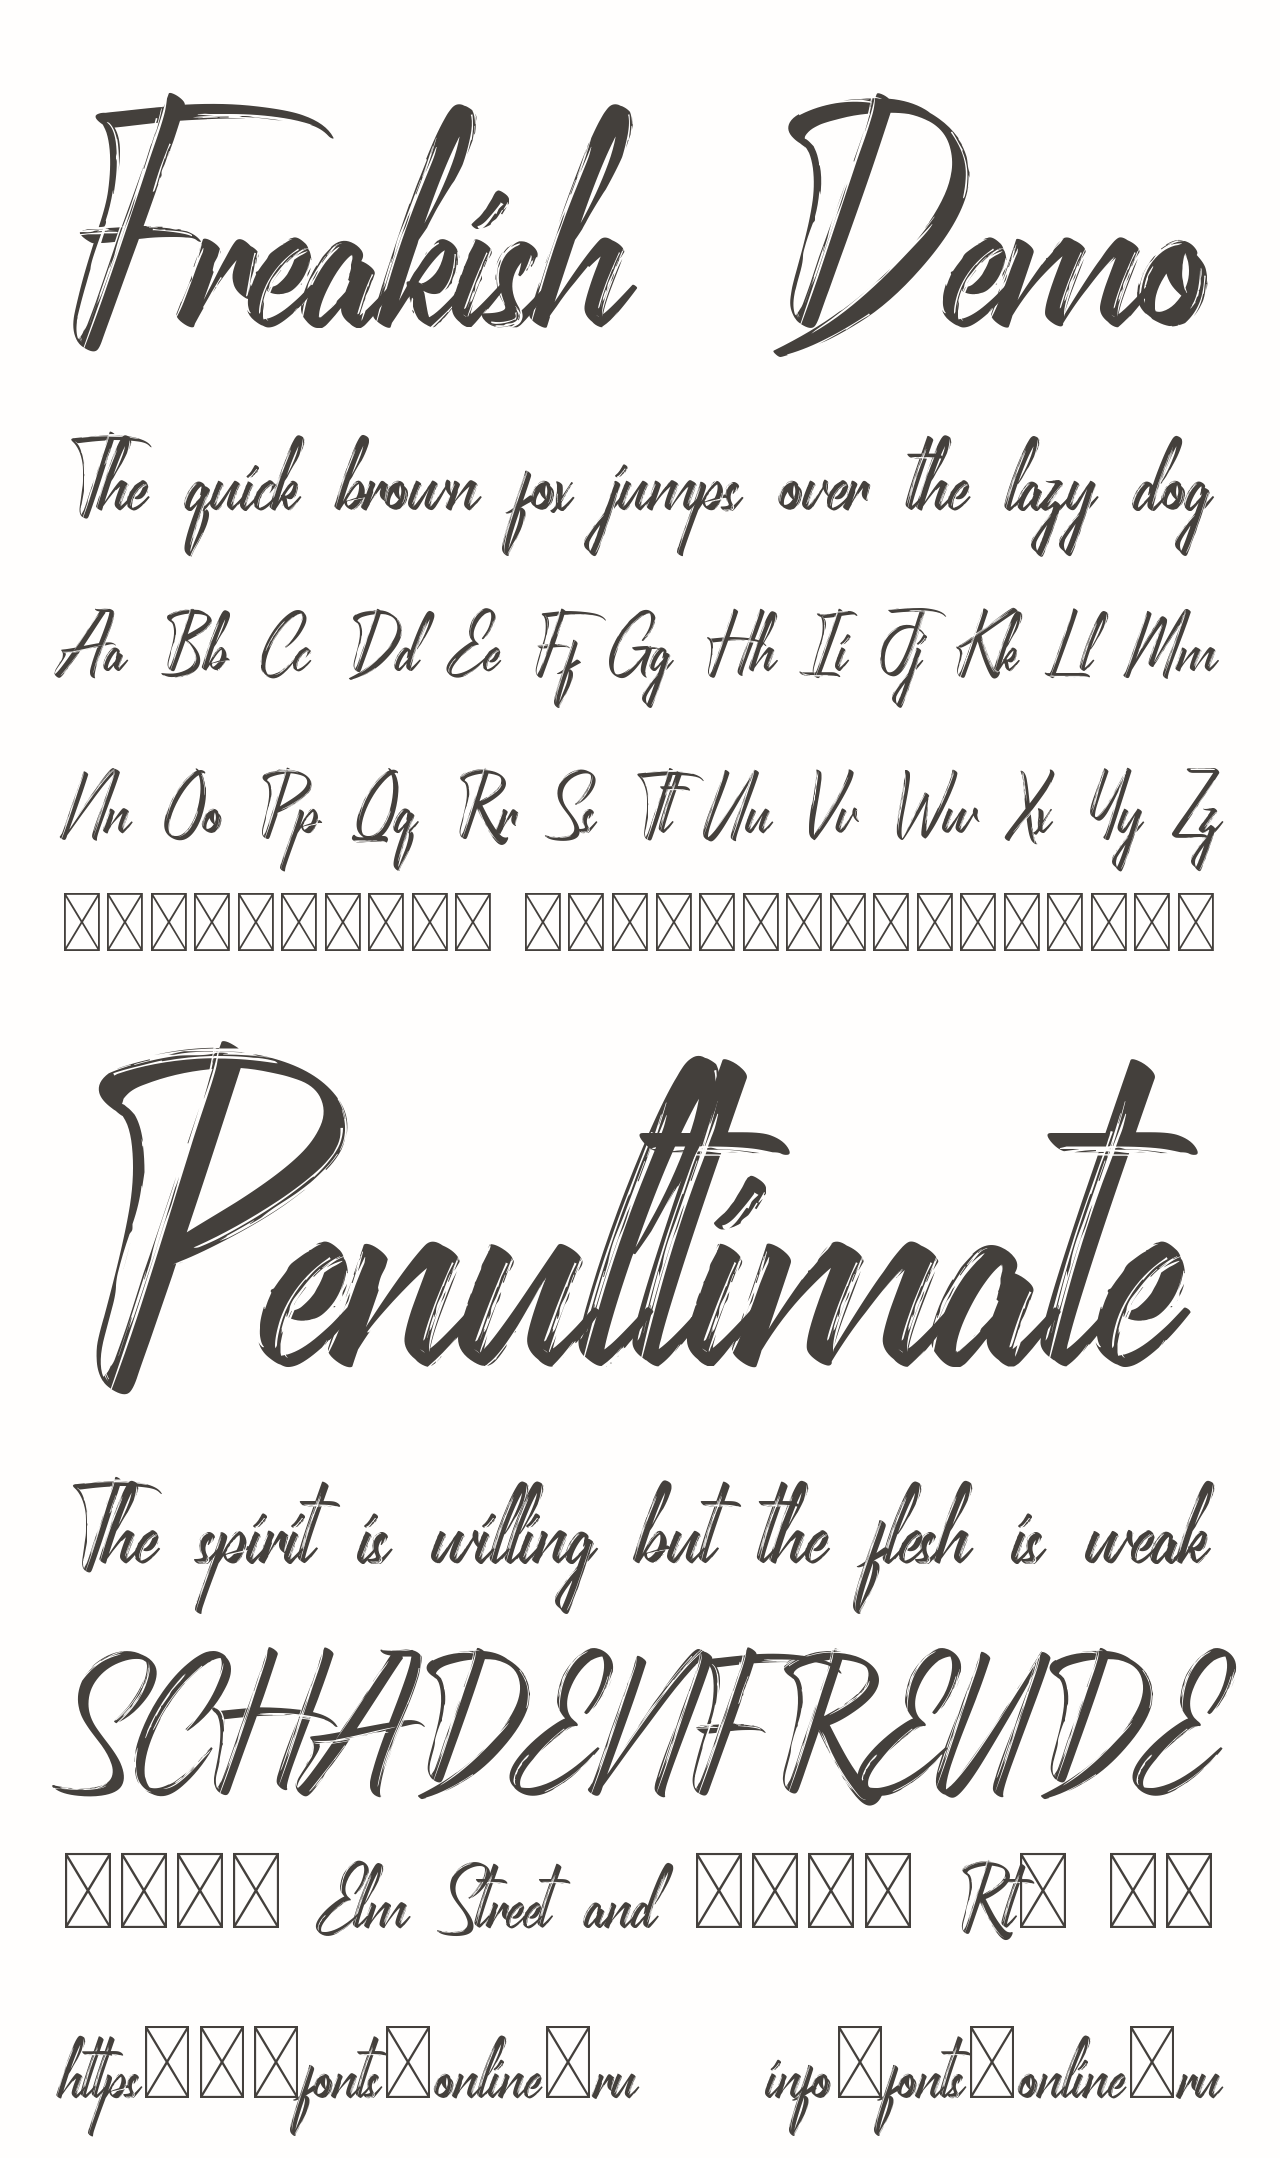 Freakish Demo
The quick brown fox jumps over the lazy dog
Aa Bb Cc Dd Ee Ff Gg Hh Ii Jj Kk Ll Mm
Nn Oo Pp Qq Rr Ss Tt Uu Vv Ww Xx Yy Zz
Penultimate
The spirit is willing but the flesh is weak
SCHADENFREUDE
Elm Street and Rt
https fonts online ru info fonts online ru